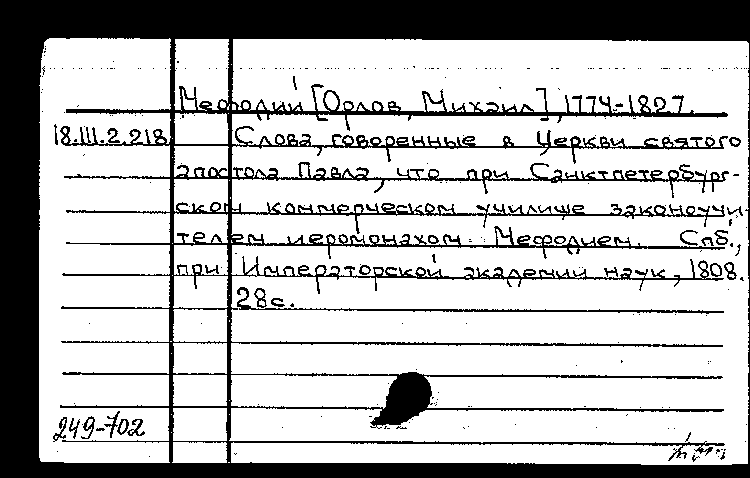 Мефодий [Орлов, Михаил], 1774-1827.
18.III.2.218 Слова, говоренные в Церкви святого
апостола Павла, что при Санктпетербург-
ском коммерческом училище законоучи-
телем иеромонахом Мефодием. Спб.,
при Императорской академии наук, 1808.
28с.
249-702